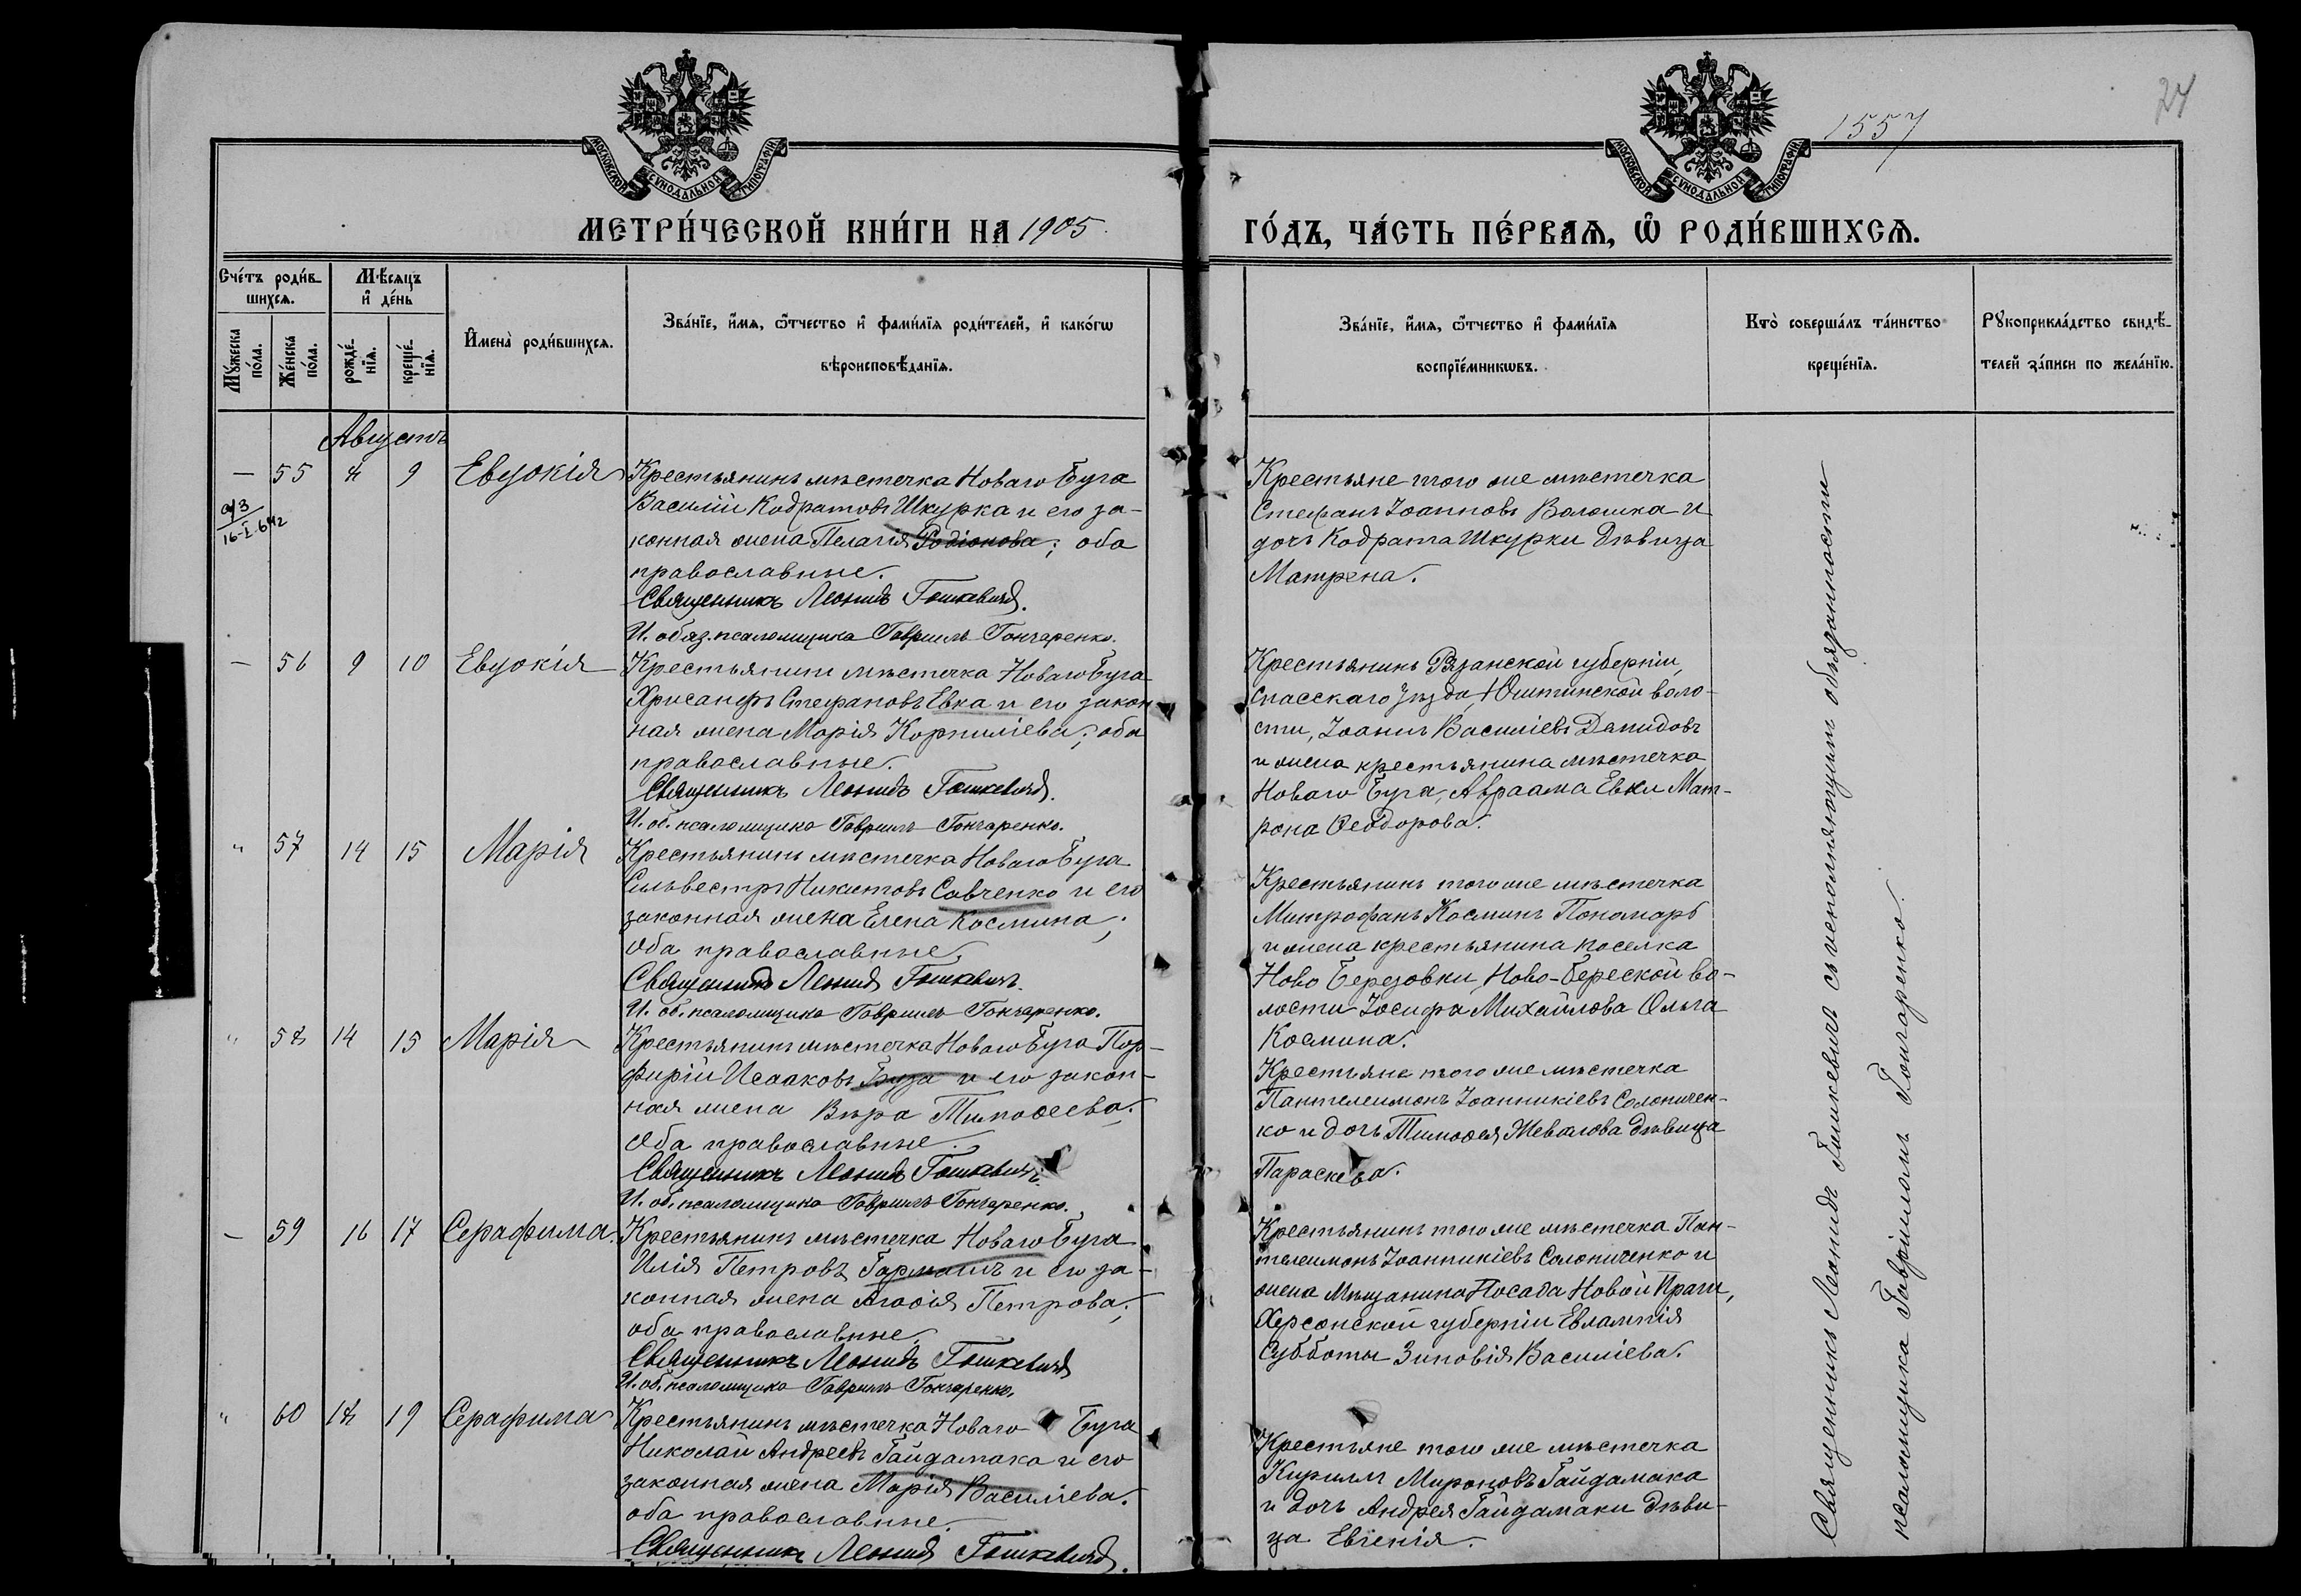 24
1557
МОСКОВСКОЙ СѴНОДАЛЬНОЙ ТИПОГРАФІИ
МОСКОВСКОЙ СѴНОДАЛЬНОЙ ТИПОГРАФІИ
МЕТРИ́ЧЕСКОЙ КНИ́ГИ НА 1905
ГО́ДЪ, ЧА́СТЬ ПЕ́РВАѦ, Ѿ РОДИ́ВШИХСѦ.
Сче́тъ роди́в-
шихсѧ.
Мѣ́сѧцъ
и҆ де́нь
Мꙋ́жеска
по́ла.
Же́нска
по́ла.
рожде́-
нїѧ.
креще́-
нїѧ.
И҆мена̀ роди́вшихсѧ.
Зва́нїе, и҆́мѧ, ѻ҆́тчество и҆ фами́лїѧ роди́телей, и҆ како́гѡ
вѣроисповѣ́данїѧ.
Зва́нїе, и҆́мѧ, ѻ҆́тчество и҆ фами́лїѧ
воспрїе́мникѡвъ.
Кто̀ соверша́лъ та́инство
креще́нїѧ.
Рꙋкоприкла́дство свидѣ́-
телей за́писи по жела́нїю.
Августъ
— 55 4 9 Евдокія
а/з
16-I-642
Крестьянинъ мѣстечка Новаго Буга
Василій Кодратовъ Шкурка и его за-
конная жена Пелагія Родіонова; оба
православные.
Священникъ Леонидъ Гошкевичъ.
И. обяз. псаломщика Гавріилъ Гончаренко.
Крестьяне того же мѣстечка
Стефанъ Іоанновъ Волошка и
дочь Кодрата Шкурки дѣвица
Матрена.
— 56 9 10 Евдокія
Крестьянинъ мѣстечка Новаго Буга
Хрисанфъ Стефановъ Евка и его закон
ная жена Марія Корниліева; оба
православные.
Священникъ Леонидъ Гошкевичъ.
И. об. псаломщика Гавріилъ Гончаренко.
Крестьянинъ Рязанской губерніи,
Спасскаго уѣзда, Ижтинской воло-
сти, Іоаннъ Василіевъ Демидовъ
и жена крестьянина мѣстечка
Новаго Буга, Авраама Евки Мат-
рона Ѳеодорова.
" 57 14 15 Марія
Крестьянинъ мѣстечка Новаго Буга
Сильвестръ Никитовъ Савченко и его
законная жена Елена Космина;
оба православные.
Священникъ Леонидъ Гошкевичъ.
И. об. псаломщика Гавріилъ Гончаренко.
Крестьянинъ того же мѣстечка
Митрофанъ Косминъ Пономарь
и жена крестьянина поселка
Ново Березовки, Ново-Бугской во-
лости Іосифа Михайлова Ольга
Космина.
" 58 14 15 Марія
Крестьянинъ мѣстечка Новаго Буга Пор-
фирій Исааковъ Буза и его закон-
ная жена Вѣра Тимоѳеева;
оба православные.
Священникъ Леонидъ Гошкевичъ.
И. об. псаломщика Гавріилъ Гончаренко.
Крестьяне того же мѣстечка
Пантелеимонъ Іоанникіевъ Солониchen-
ко и дочь Тимоѳея Жевалова дѣвица
Параскева.
— 59 16 17 Серафима.
Крестьянинъ мѣстечка Новаго Буга
Илія Петровъ Гармашъ и его за-
конная жена Агафія Петрова;
оба православные.
Священникъ Леонидъ Гошкевичъ
И. об. псаломщика Гавріилъ Гончаренко.
Крестьянинъ того же мѣстечка Пан-
телеимонъ Іоанникіевъ Солониченко и
жена Мѣщанина Посада Новой Праги,
Херсонской губерніи Евлампія
Субботы Зиновія Василіева.
" 60 18 19 Серафима
Крестьянинъ мѣстечка Новаго Буга
Николай Андреевъ Гайдамака и его
законная жена Марія Василіева.
оба православные.
Священникъ Леонидъ Гошкевичъ.
Крестьяне того же мѣстечка
Кириллъ Мироновъ Гайдамака
и дочь Андрея Гайдамаки дѣви-
ца Евгенія.
Священникъ Леонидъ Гошкевичъ съ исполняющимъ обязанности
псаломщика Гавріиломъ Гончаренко.